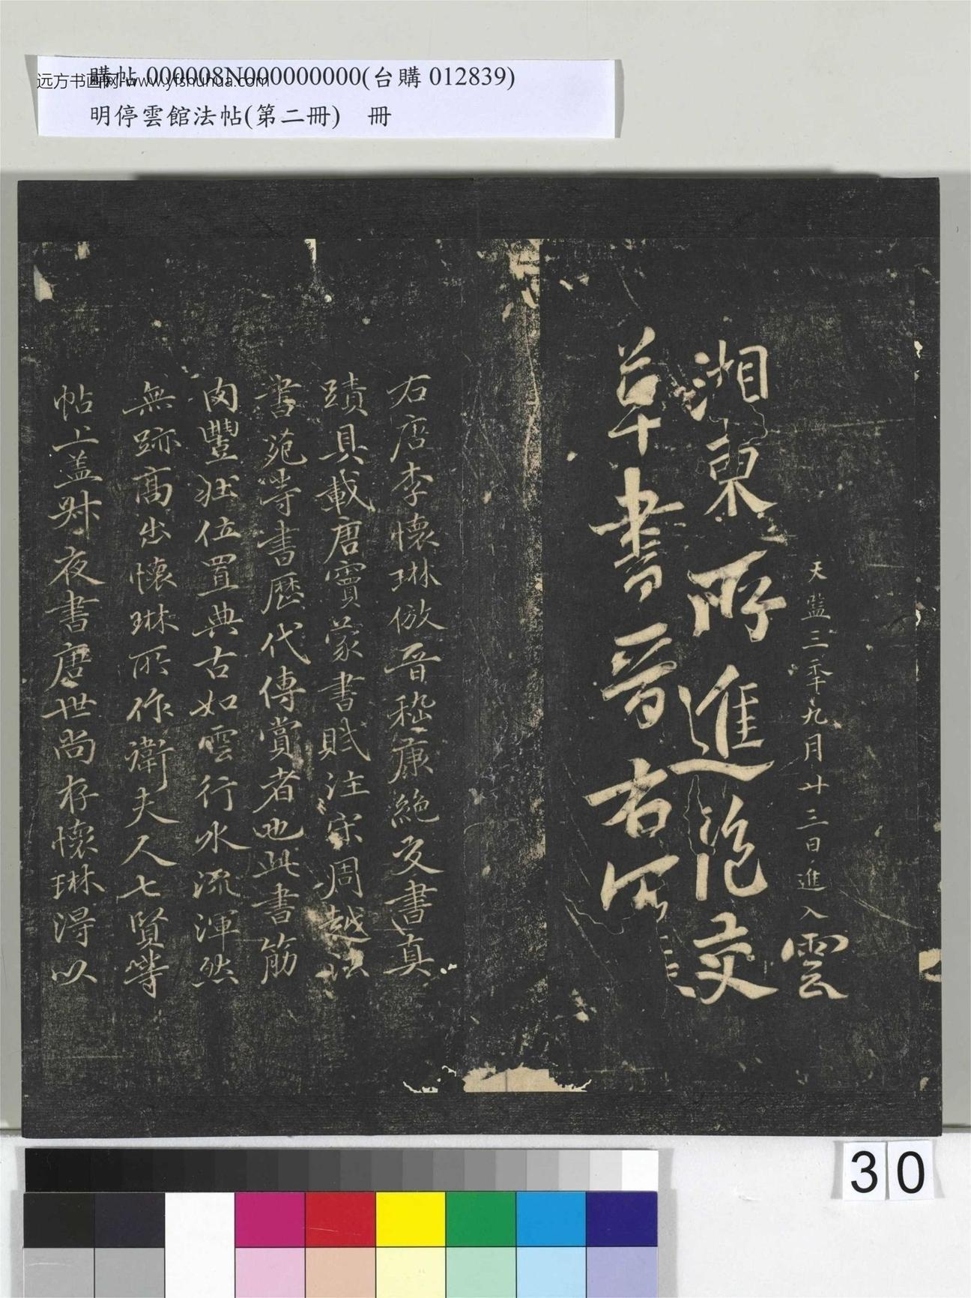 購帖 000008N000000000(台購 012839)
远方书画网 www.yfshuhua.com
明停雲館法帖(第二冊) 冊
天監三年九月廿三日進入 雲
湘東所進絕交
草書晉右軍
右唐李懷琳倣晉嵇康絕交書真
蹟具載唐竇蒙書賦注宋周越法
書苑等書歷代傳賞者也此書筋
肉豐壯位置典古如雲行水流渾然
無跡高出懷琳所作衛夫人七賢等
帖上盖叔夜書唐世尚存懷琳得以
30